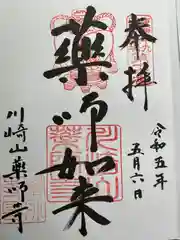 奉拝
令和五年
五月六日
薬師如来
川崎山薬師寺